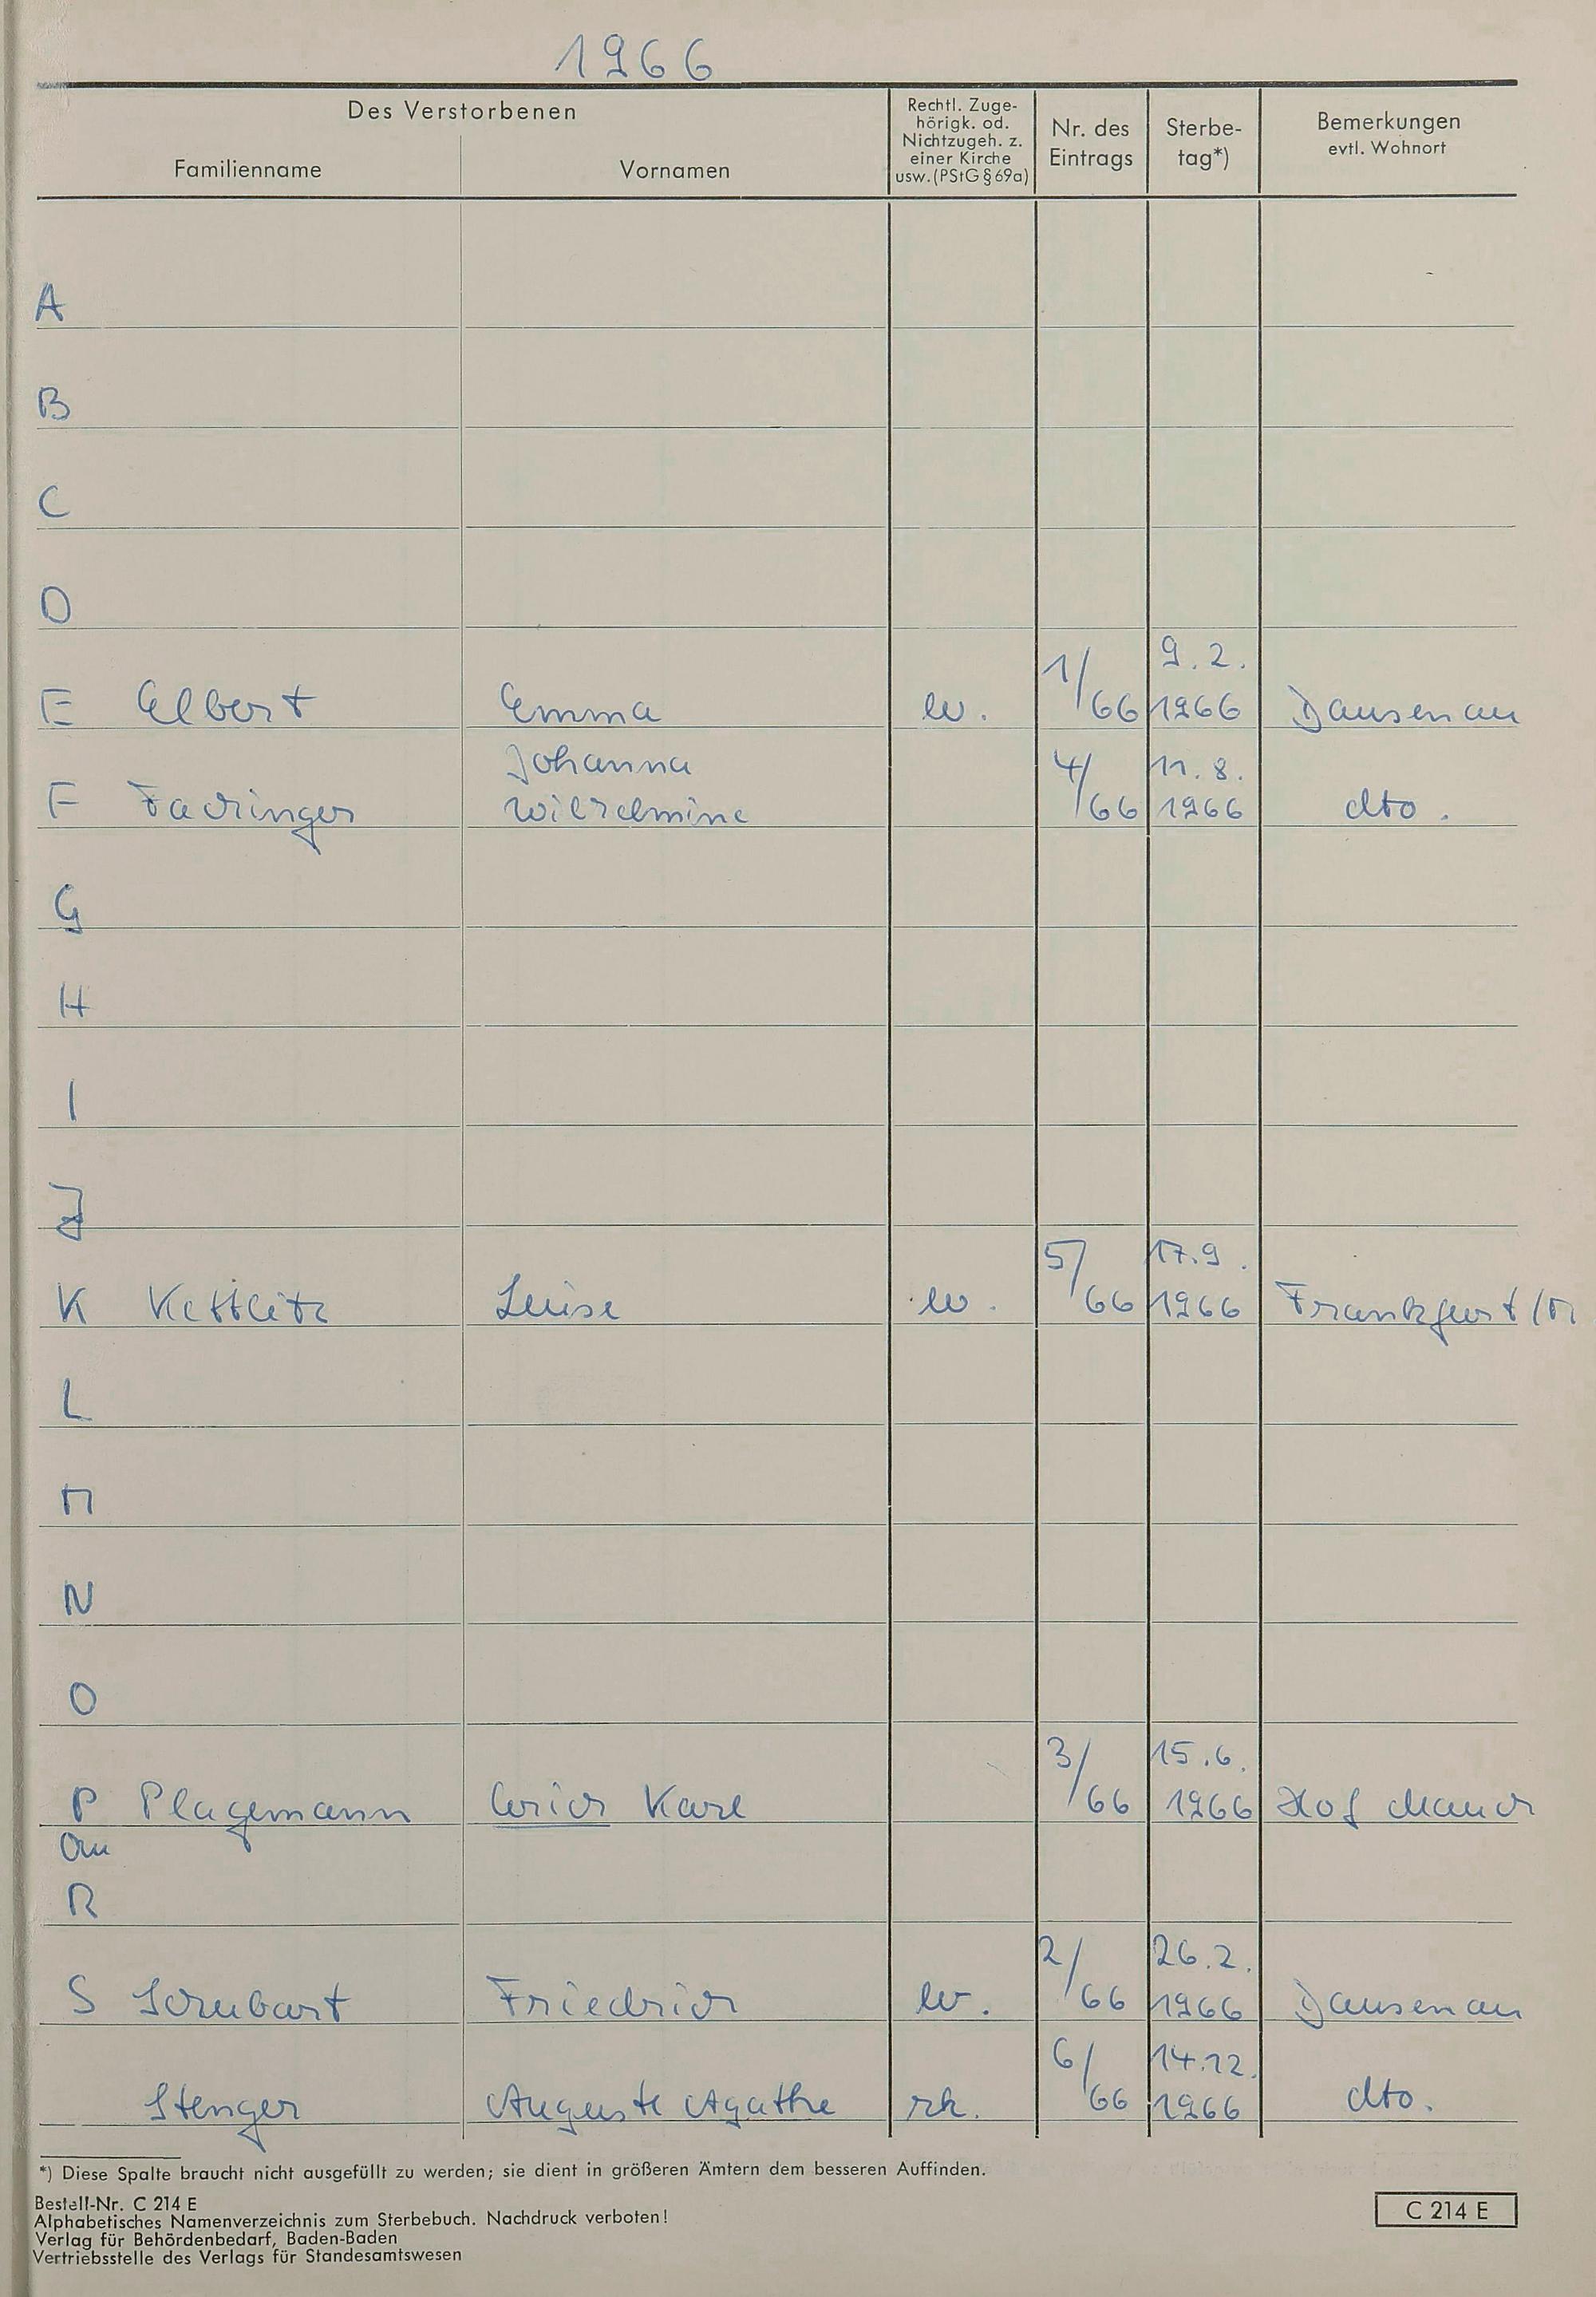 1966
Des Verstorbenen
Familienname
Vornamen
Rechtl. Zuge-
hörigk. od.
Nichtzugeh. z.
einer Kirche
usw. (PStG § 69a)
Nr. des
Eintrags
Sterbe-
tag*)
Bemerkungen
evtl. Wohnort
A
B
C
D
1/ 9.2.
E Elbert Emma ev. 66 1966 Dausenau
Johanna 4/ 11.8.
F Fachinger Wilhelmine 66 1966 dto.
G
H
I
J
5/ 17.9.
K Kettlitz Luise ev. 66 1966 Frankfurt/M
L
M
N
O
3/ 15.6.
P Plagemann Erich Karl 66 1966 Hof Mauch
Qu
R
2/ 26.2.
S Schubart Friedrich ev. 66 1966 Dausenau
6/ 14.12.
Stenger Auguste Agathe rk. 66 1966 dto.
*) Diese Spalte braucht nicht ausgefüllt zu werden; sie dient in größeren Ämtern dem besseren Auffinden.
Bestell-Nr. C 214 E
Alphabetisches Namenverzeichnis zum Sterbebuch. Nachdruck verboten!
Verlag für Behördenbedarf, Baden-Baden
Vertriebsstelle des Verlags für Standesamtswesen
C 214 E